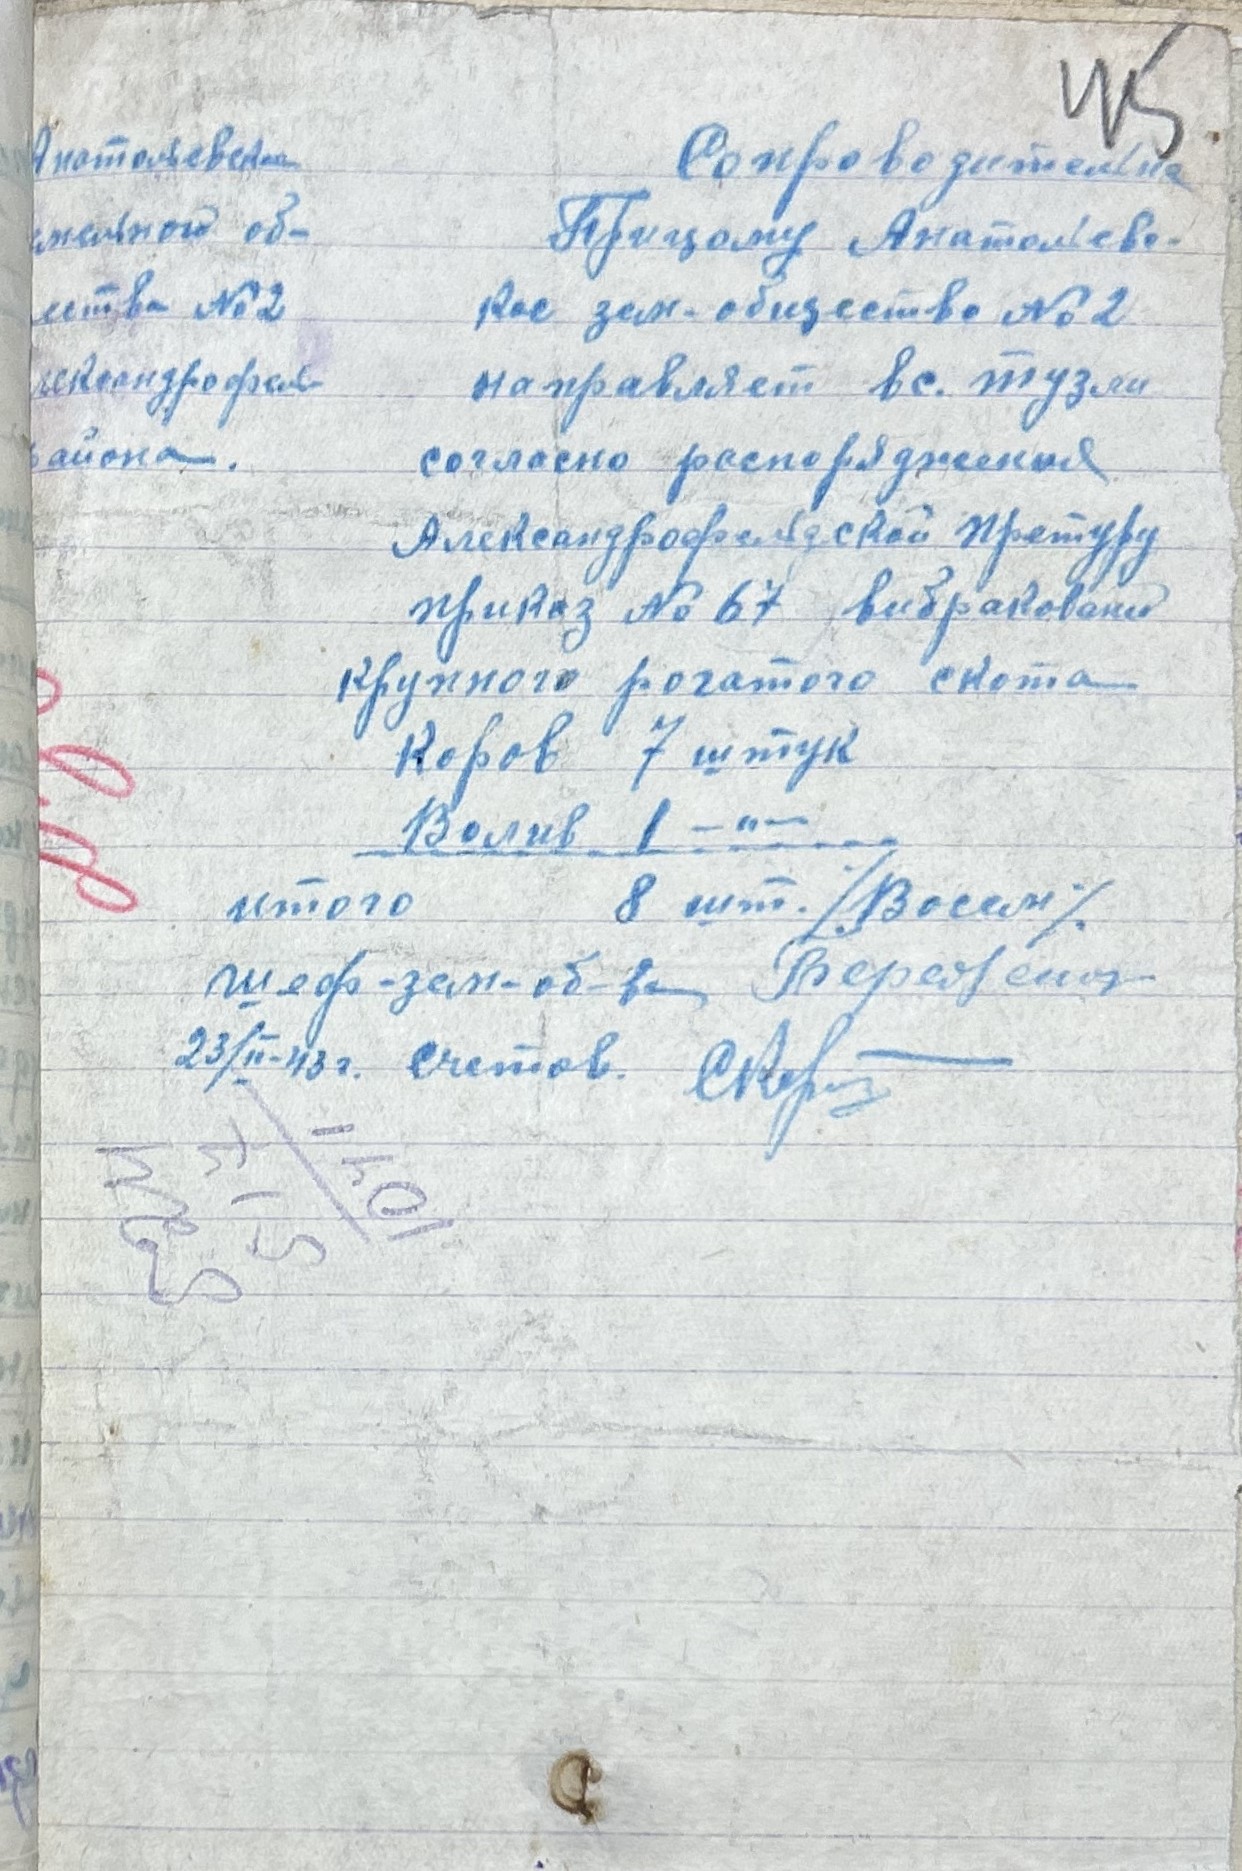 45
Анатольевска
емельной об-
ества № 2
лександрофель-
района.
Сопроводительна
При цьому Анатольевс-
кое зем-общество № 2
направляет в с. Тузли
согласно распоряджения
Александрофельдской претуры
приказ № 67 вибраковани
крупного рогатого скота
Коров 7 штук
Волив 1 –"–
итого 8 шт. /Восем/.
шеф-зем-об-ва
23/II-43 г. Счетов.